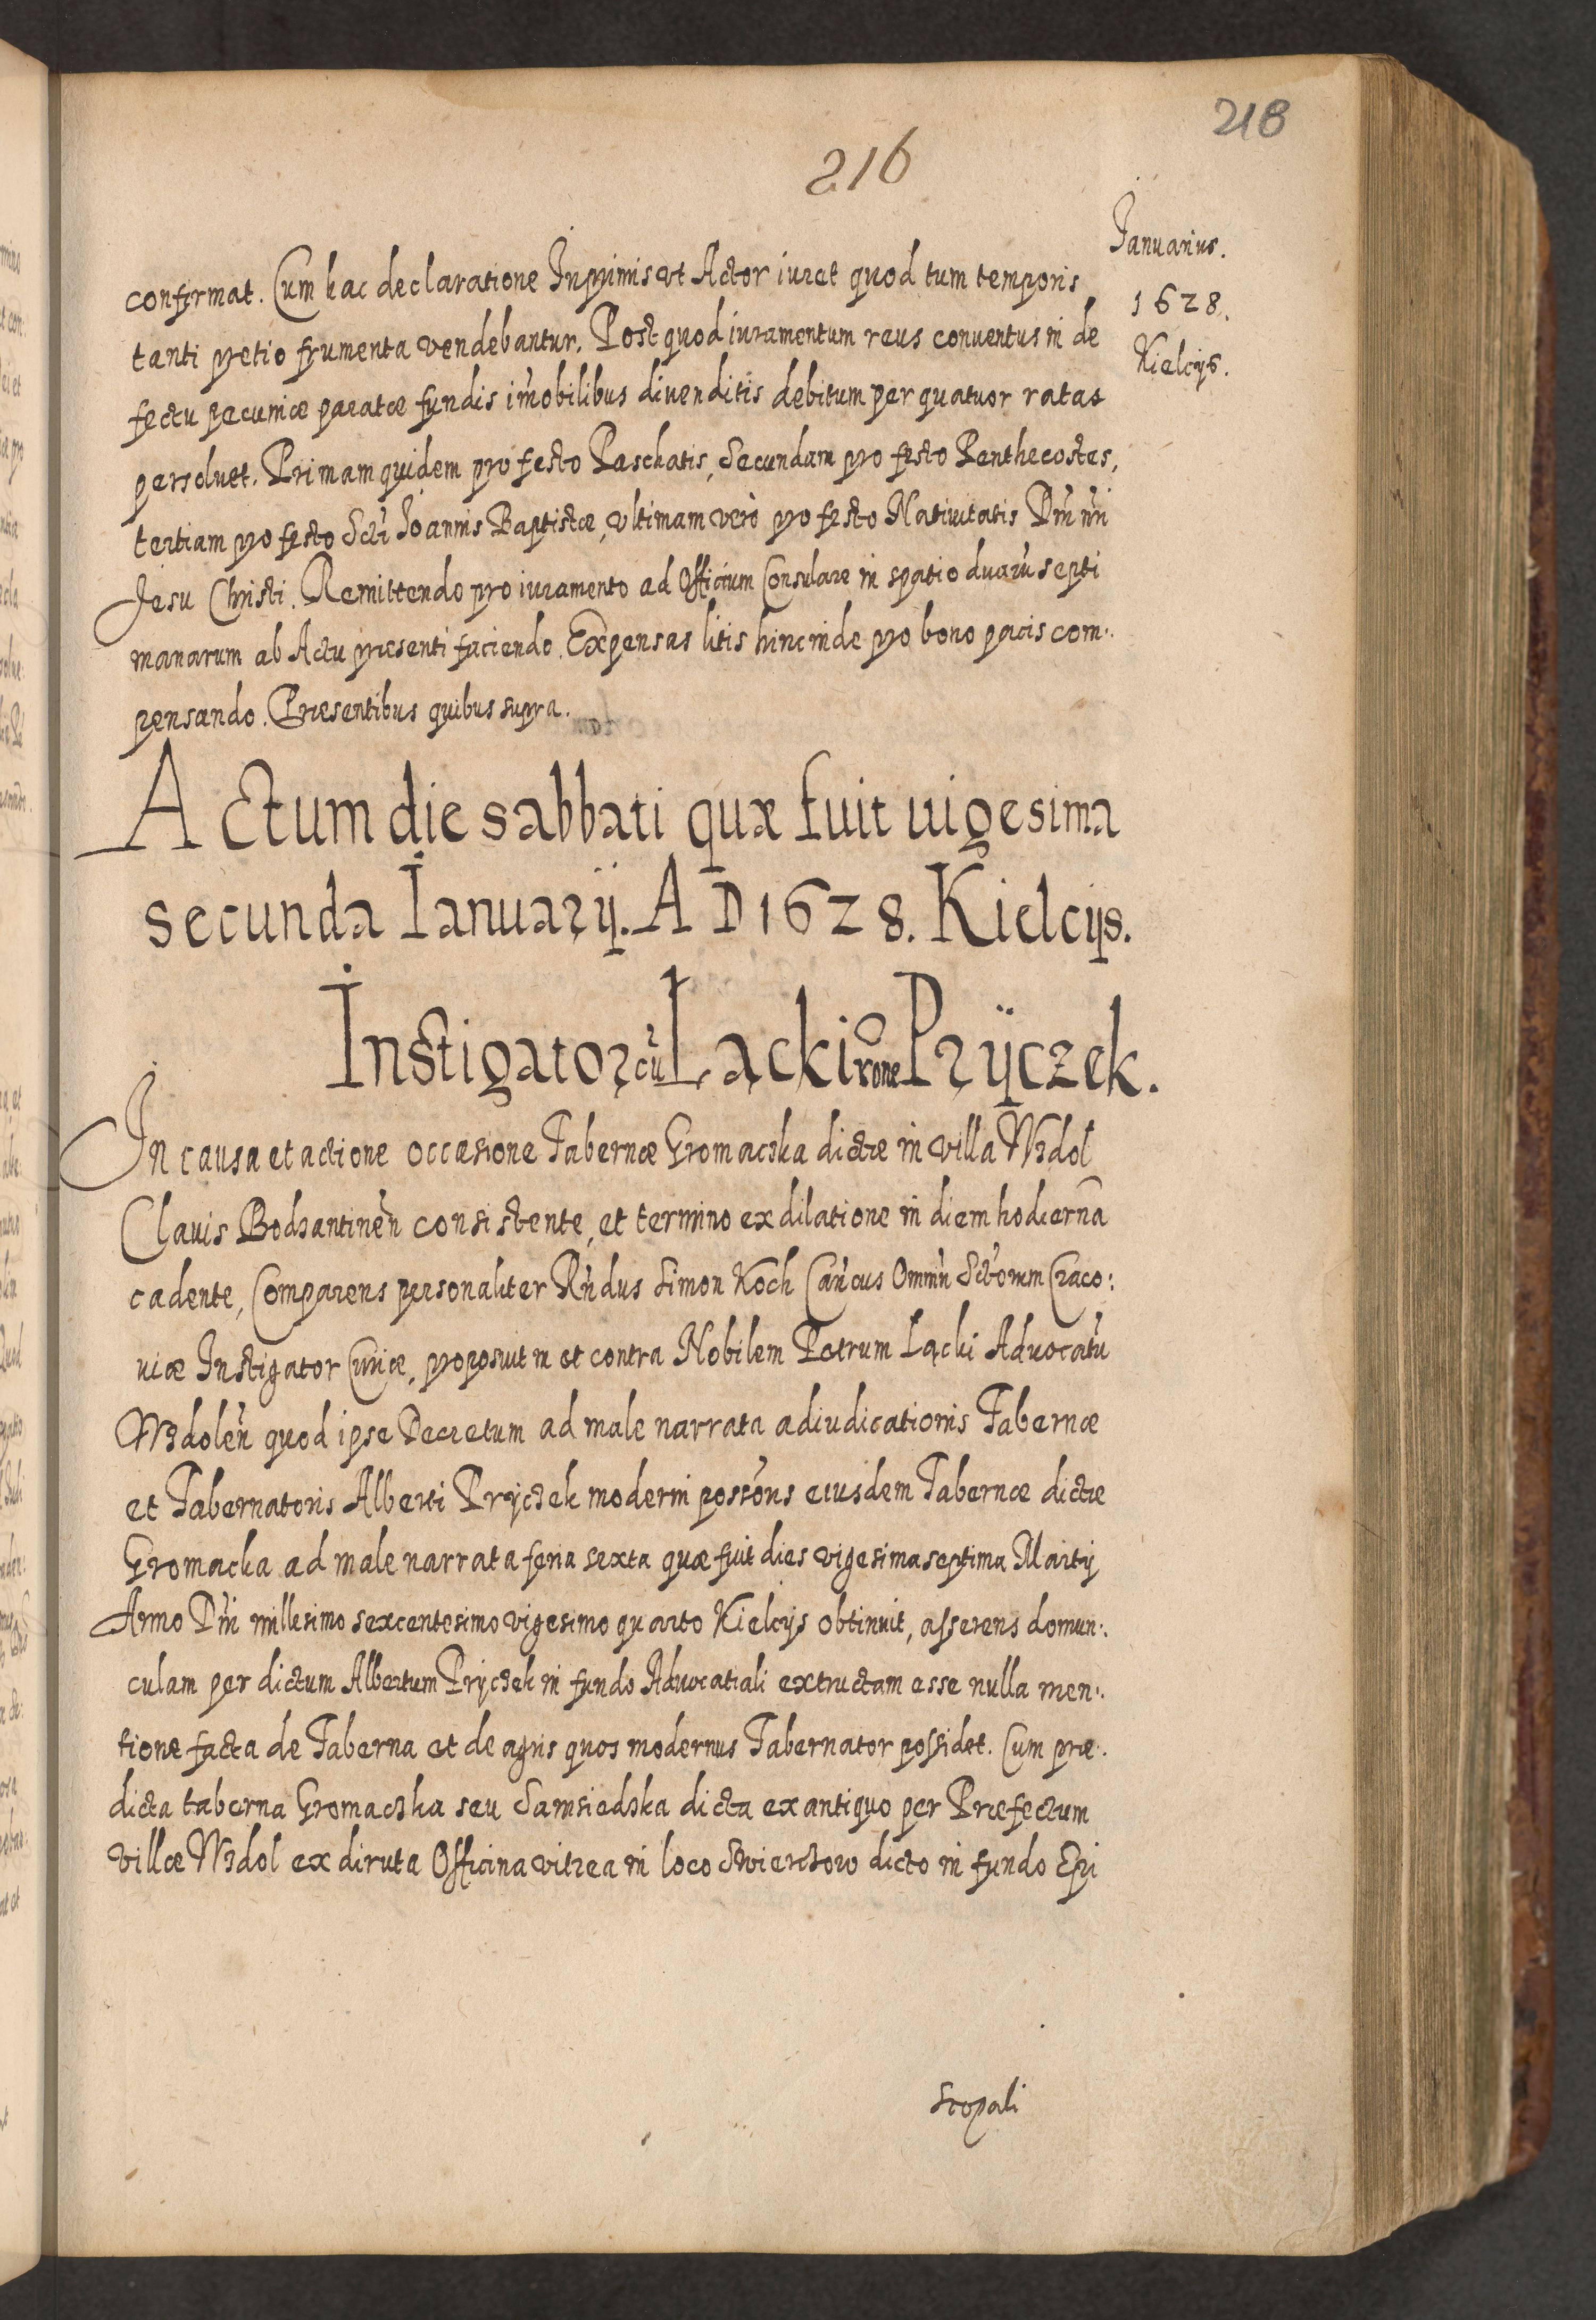 218
216
Januarius.
1628.
Kielcijs.
confirmat. Cum hac declaratione Inprimis ut Actor iuret quod tum temporis
tanti pretio frumenta vendebantur. Post quod iuramentum reus conventus in de
fectu pecuniæ paratæ fundis im̃obilibus divenditis debitum per quatuor ratas
persolvet. Primam quidem pro festo Paschatis, Secundam pro festo Penthecostes,
tertiam pro festo Scti Joannis Baptistæ, ultimam verò pro festo Nativitatis Dn̄i nr̄i
Jesu Christi. Remittendo pro iuramento ad Officium Consulare in spatio duarũ septi
manarum ab Actu præsenti faciendo. Expensas litis hinc inde pro bono pacis com:
pensando. Præsentibus quibus supra.
Actum die sabbati quæ fuit uigesima
secunda Januarij. A D 1628. Kielcijs.
Instigator cũ Łącki rone Pryczek.
In causa et actione occasione Tabernæ Gromaczka dictæ in villa Wzdol
Clavis Bodzantineñ consistente, et termino ex dilatione in diem hodiernã
cadente, Comparens personaliter Rñdus Simon Koch Cañcus Omniũ Sctorum Craco:
uiæ Instigator Curiæ, proposuit in et contra Nobilem Petrum Łącki Advocatũ
Wzdoleñ quod ipse Decretum ad male narrata adiudicationis Tabernæ
et Tabernatoris Alberti Pryczek moderni possõris eiusdem Tabernæ dictæ
Gromacka ad male narrata feria sexta quæ fuit dies vigesima septima Martij
Anno Dñi millesimo sexcentesimo vigesimo quarto Kielcijs obtinuit, asserens domun:
culam per dictum Albertum Pryczek in fundo Advocatiali extructam esse nulla men:
tione facta de Taberna et de agris quos modernus Tabernator possidet. Cum præ:
dicta taberna Gromaczka seu Samsiedzka dicta ex antiquo per Præfectum
villæ Wzdol ex diruta Officina vitrea in loco Swierczow dicto in fundo Epi
scopali